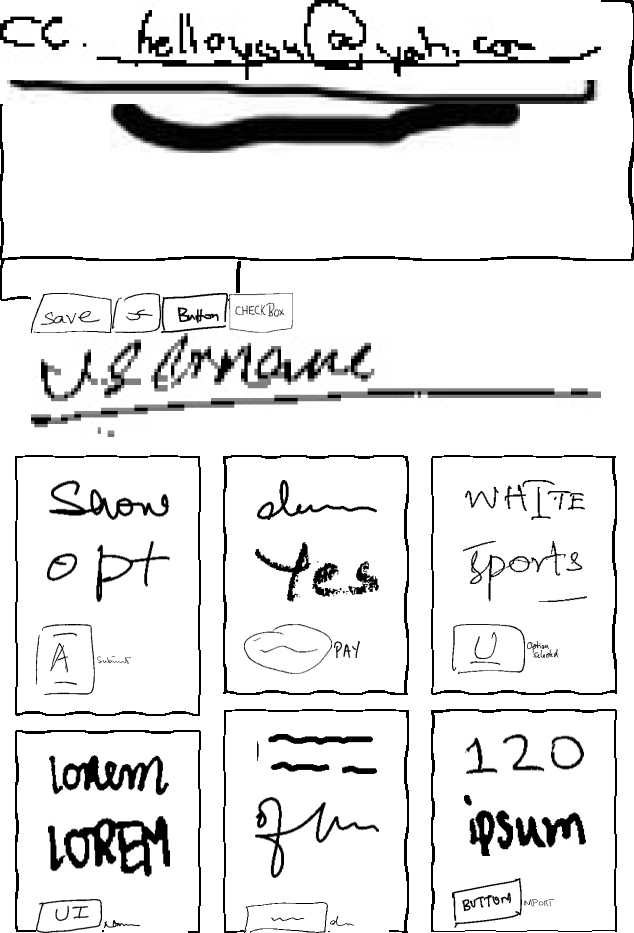 CC.
Save Button CHECKBox
Username
Show
opt
A Submit
Yes
PAY
WHITE
Sports
U Option Selected
lorem
LOREM
UI
120
ipsum
BUTTOM MPORT